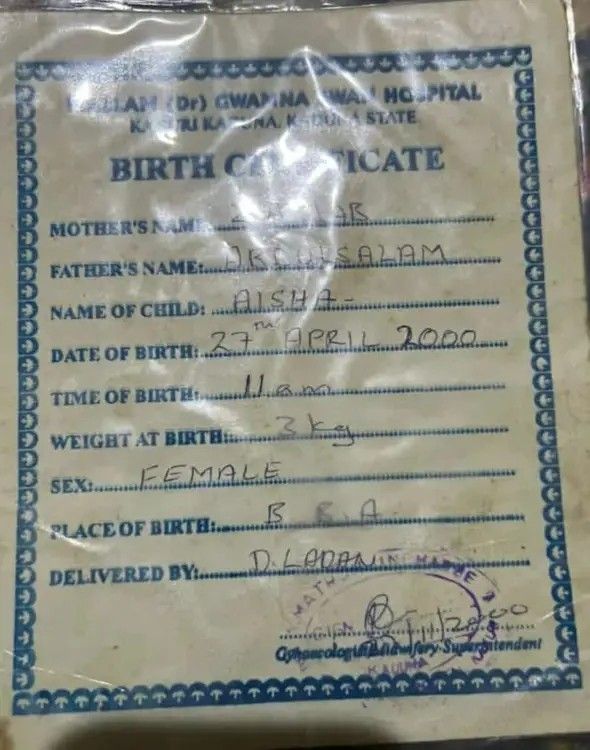 (Dr) GWAMNA AWAN HOSPITAL
KADUNA STATE
BIRTH CERTIFICATE
MOTHER'S NAME
FATHER'S NAME: ABDULSALAM
NAME OF CHILD: AISHA
DATE OF BIRTH: 27TH APRIL 2000
TIME OF BIRTH: 11am
WEIGHT AT BIRTH: 3kg
SEX: FEMALE
PLACE OF BIRTH:
DELIVERED BY: D. LADAN
Midwifery Superintendent
KADUNA